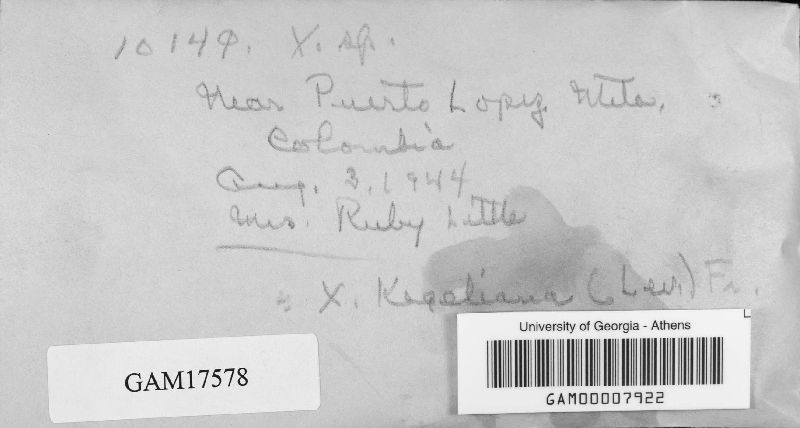 10149. X. sp.
Near Puerto Lopez, Meta,
Colombia
Aug. 3, 1944
Mrs. Ruby Little
X. Kegeliana (Lev.) Fr.
University of Georgia - Athens
GAM00007922
GAM17578